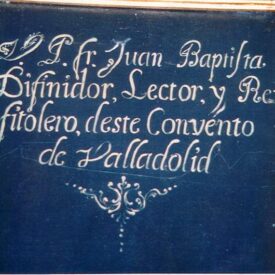 P. fr. Juan Baptista.
Difinidor, Lector, y Re
fitolero, deste Convento
de Valladolid